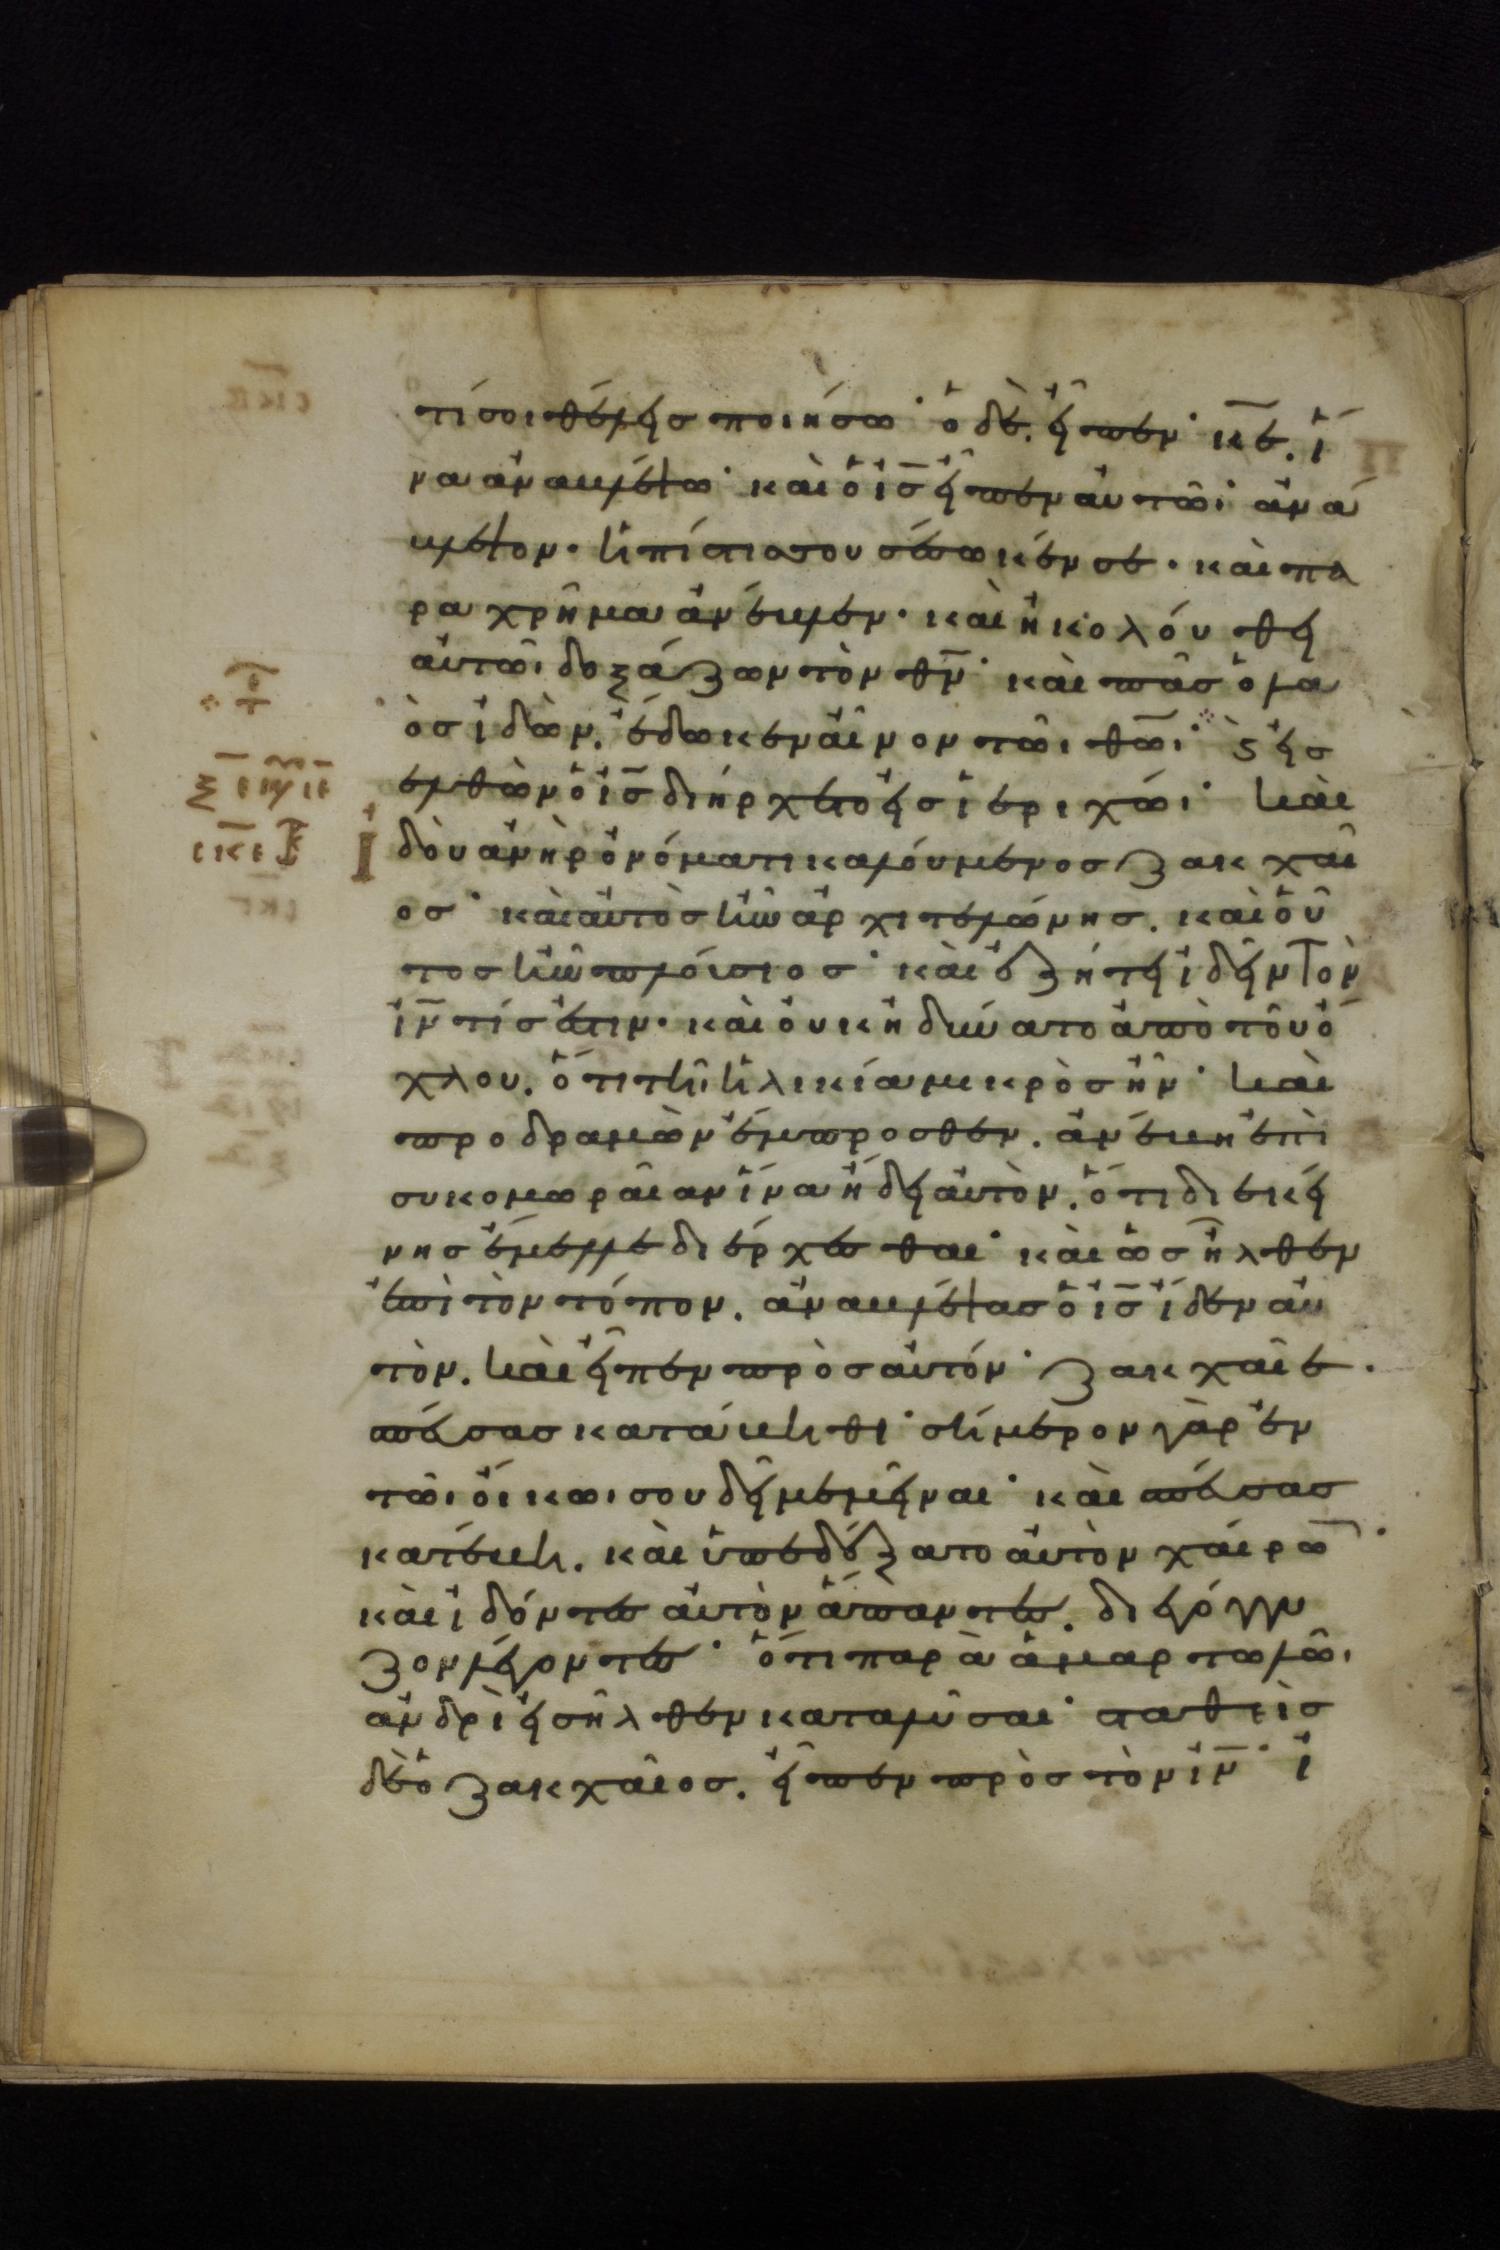 τί σοι θέλεις ποιήσω· ὁ δὲ. εἶπεν· κ̅ε̅. ἵ
να ἀναβλέψω· καὶ ὁ ι̅σ̅ εἶπεν αὐτῶι· ἀνά
βλεψον. ἡ πίστις σου σέσωκέν σε. καὶ πα
ραχρῆμα ἀνέβλεψεν. καὶ ἠκολούθει
αὐτῶι δοξάζων τὸν θ̅ν̅· καὶ πᾶς ὁ λα
ὸς ἰδὼν. ἔδωκεν αἶνον τῶι θ̅ω̅ι· ϛ εἰσ
ελθὼν ὁ ι̅σ̅ διήρχετο εἰς ἱεριχώι· καὶ
ἰδοὺ ἀνὴρ ὀνόματι καλούμενος ζακχαῖ
ος· καὶ αὐτὸς ἦν ἀρχιτελώνης. καὶ οὗ
τος ἦν πλούσιος· καὶ ἐζήτει ἰδεῖν τὸν
ι̅ν̅ τίς ἐστιν. καὶ οὐκ ἠδύνατο ἀπὸ τοῦ ὄ
χλου. ὅτι τῆι ἡλικία μικρὸς ἦν· καὶ
προδραμὼν ἔμπροσθεν. ἀνέβη ἐπὶ
συκομωραίαν ἵνα ἤδει αὐτὸν. ὅτι δι ἐκεί
νης ἔμελλε διέρχεσθαι· καὶ ὡς ἦλθεν
ἐπὶ τὸν τόπον. ἀναβλέψας ὁ ι̅σ̅ ἴδεν αὐ
τὸν. καὶ εἶπεν πρὸς αὐτόν· ζακχαῖε.
σπεύσας κατάβηθι· σήμερον γὰρ ἐν
τῶι οἴκωι σου δεῖ με μεῖναι· καὶ σπεύσας
κατέβη. καὶ ὑπεδέξατο αὐτὸν χαίρω̅·
καὶ ἰδόντες αὐτὸν ἅπαντες. διεγόγγυ
ζον λέγοντες· ὅτι παρὰ ἁμαρτωλῶι
ἀνδρὶ εἰσῆλθεν καταλῦσαι· σταθεὶς
δὲ ὁ ζακχαῖος. εἶπεν πρὸς τὸν ι̅ν̅· ἰ